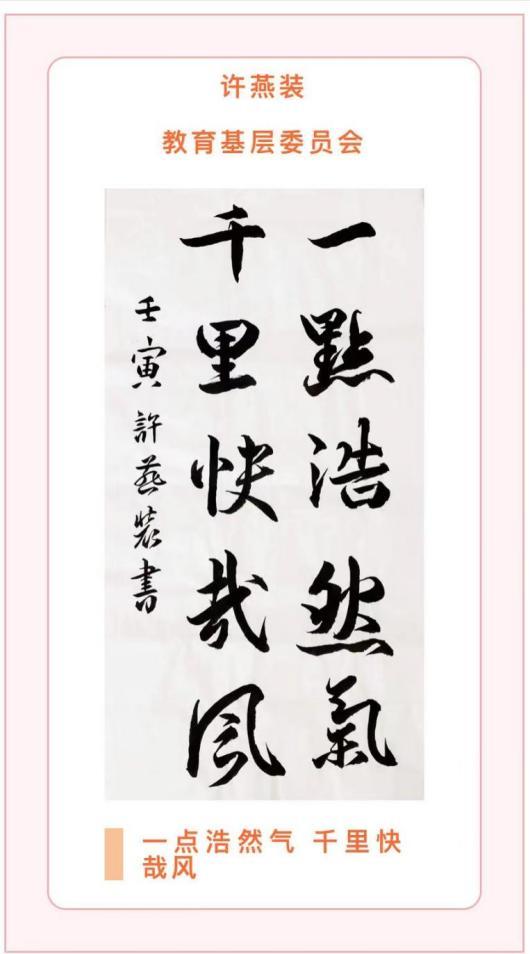 许燕装
教育基层委员会
一點浩然氣
千里快哉风
壬寅許燕裝書
一点浩然气 千里快
哉风